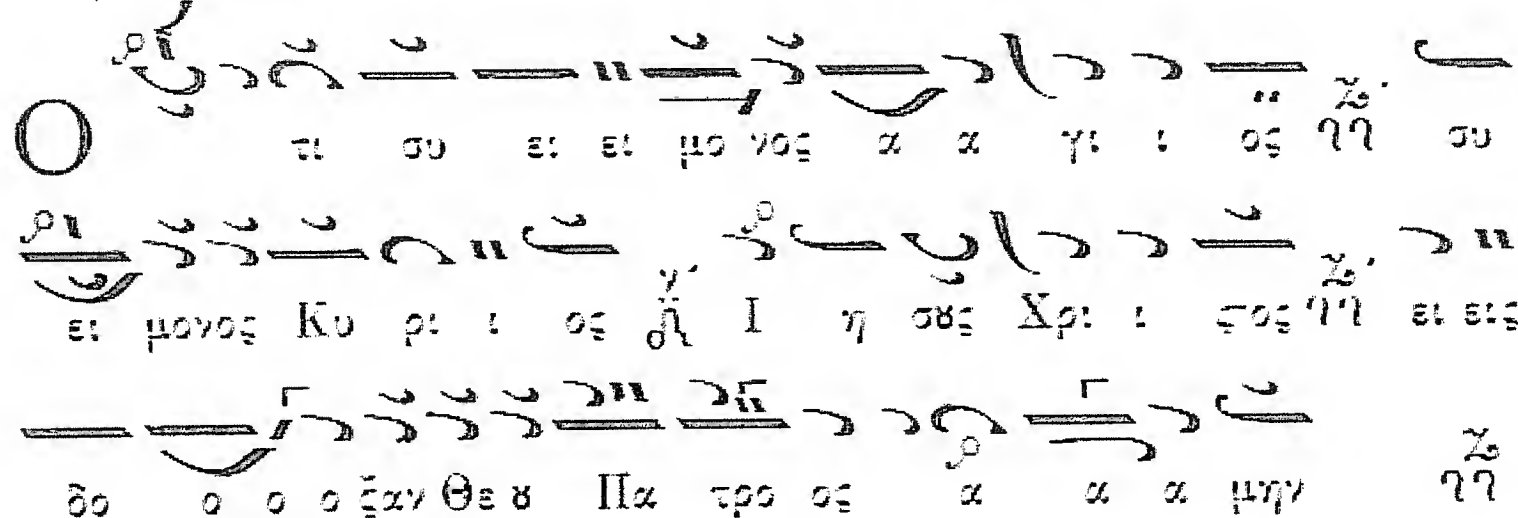 Ο τι συ ει ει μο νος α α γι ι ος ζ' συ
ει μονος Κυ ρι ι ος γ' Ι η σȣς Χρι ι ϛος ζ' ει εις
δο ο ο ο ξαν Θε ȣ Πα τρο ος α α α μην ζ